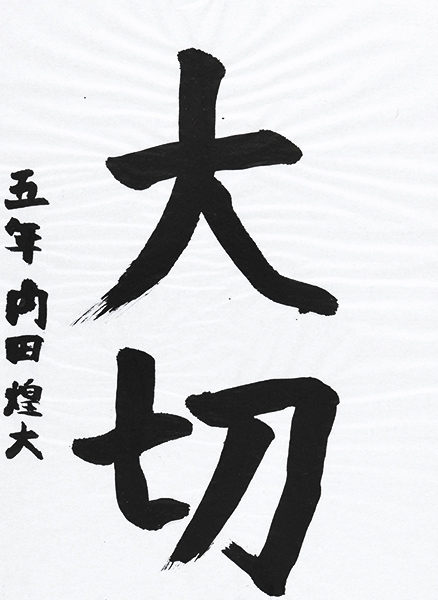 大切
五年 内田煌大